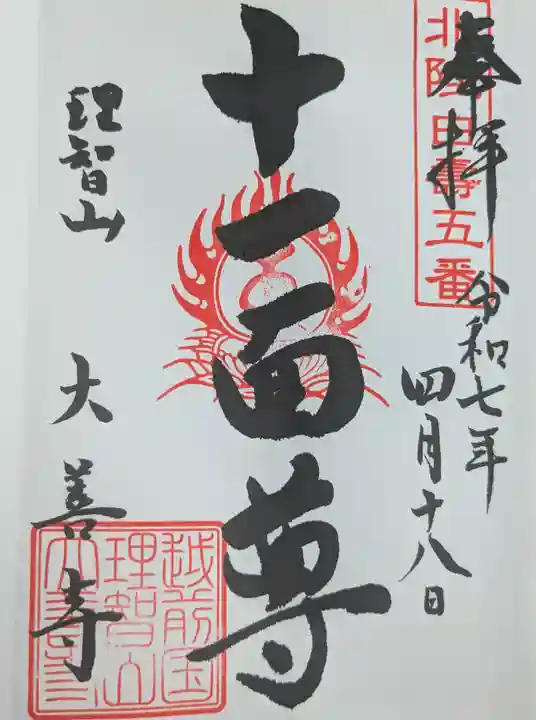 北陸白寿五番
奉拝
令和七年
四月十八日
十一面尊
理智山
大善寺
越前国
理智山
大善寺